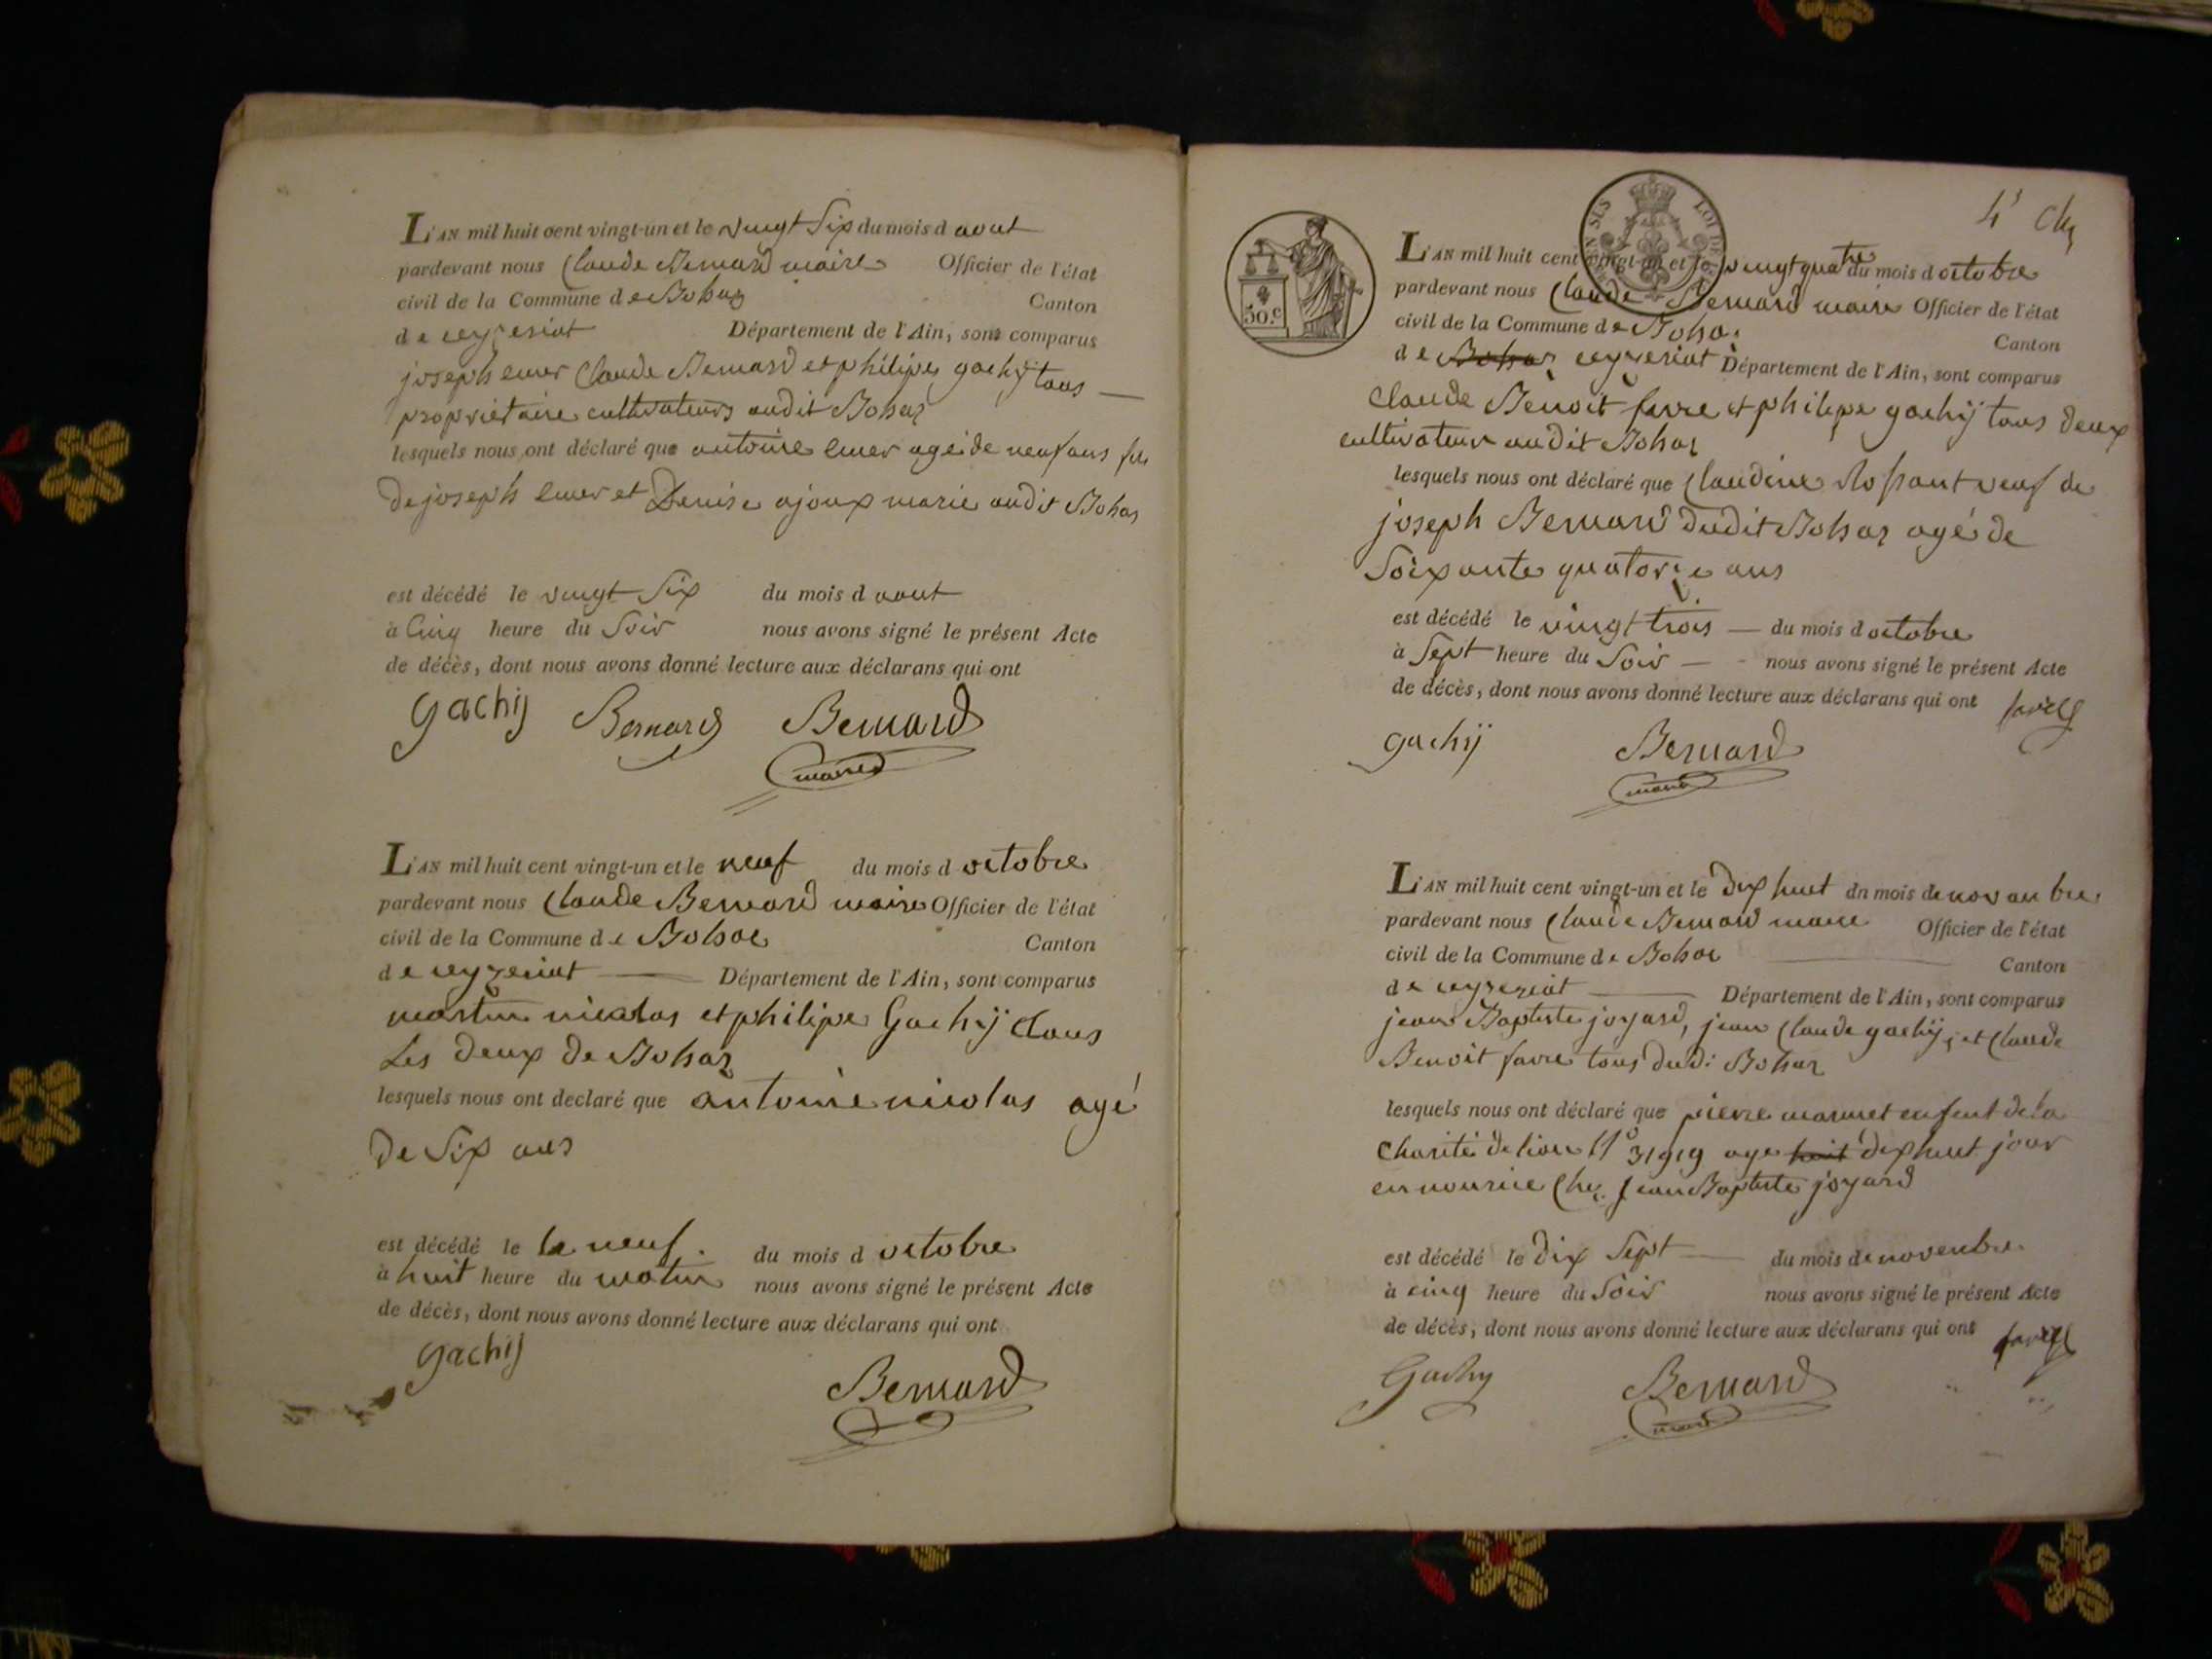 L'AN mil huit cent vingt-un et le vingt six du mois d aout
pardevant nous Claude Bernard maire Officier de l'état
civil de la Commune de Bohas Canton
de ceyzeriat Département de l'Ain, sont comparus
joseph Claude Bernard et philipe gachij tous
proprietaire cultivateurs audit Bohas
lesquels nous ont déclaré que antoine agé de neuf ans fils
de joseph et Denise ajoux marié audit Bohas
est décédé le vingt six du mois d aout
à Cinq heure du Soir nous avons signé le présent Acte
de décès, dont nous avons donné lecture aux déclarans qui ont
gachij Bernard Bernard
maire
L'AN mil huit cent vingt-un et le neuf du mois d octobre
pardevant nous Claude Bernard maire Officier de l'état
civil de la Commune de Bohas Canton
de ceyzeriat Département de l'Ain, sont comparus
martin nicolas et philipe Gachij tous
Les deux de Bohas
lesquels nous ont declaré que antoine nicolas agé
de Six ans
est décédé le le neuf. du mois d octobre
à huit heure du matin nous avons signé le présent Acte
de décès, dont nous avons donné lecture aux déclarans qui ont
gachij
Bernard
4e
30.c
L'AN mil huit cent vingt-un et le vingt quatre du mois d octobre
pardevant nous Claude Bernard maire Officier de l'état
civil de la Commune de Bohas Canton
de Bohas ceyzeriat Département de l'Ain, sont comparus
Claude Benoit favre et philipe gachij tous deux
cultivateur audit Bohas
lesquels nous ont déclaré que Claudine veuf de
joseph Bernard dudit Bohas agé de
Soixante quatorze ans
est décédé le vingt trois du mois d octobre
à Sept heure du Soir nous avons signé le présent Acte
de décès, dont nous avons donné lecture aux déclarans qui ont favre
gachij Bernard
maire
L'AN mil huit cent vingt-un et le Dix huit du mois de novanbre
pardevant nous Claude Bernard maire Officier de l'état
civil de la Commune de Bohas Canton
de ceyzeriat Département de l'Ain, sont comparus
jean Baptiste joyard, jean Claude gachij, et Claude
Benoit favre tous dudi Bohas
lesquels nous ont déclaré que pierre marmet enfent de la
Charité de lion N° 31919 age huit dix huit jour
en nourice Chez jean Baptiste joyard
est décédé le Dix Sept du mois de novenbre
à cinq heure du Soir nous avons signé le présent Acte
de décès, dont nous avons donné lecture aux déclarans qui ont favre
Gachy Bernard
maire